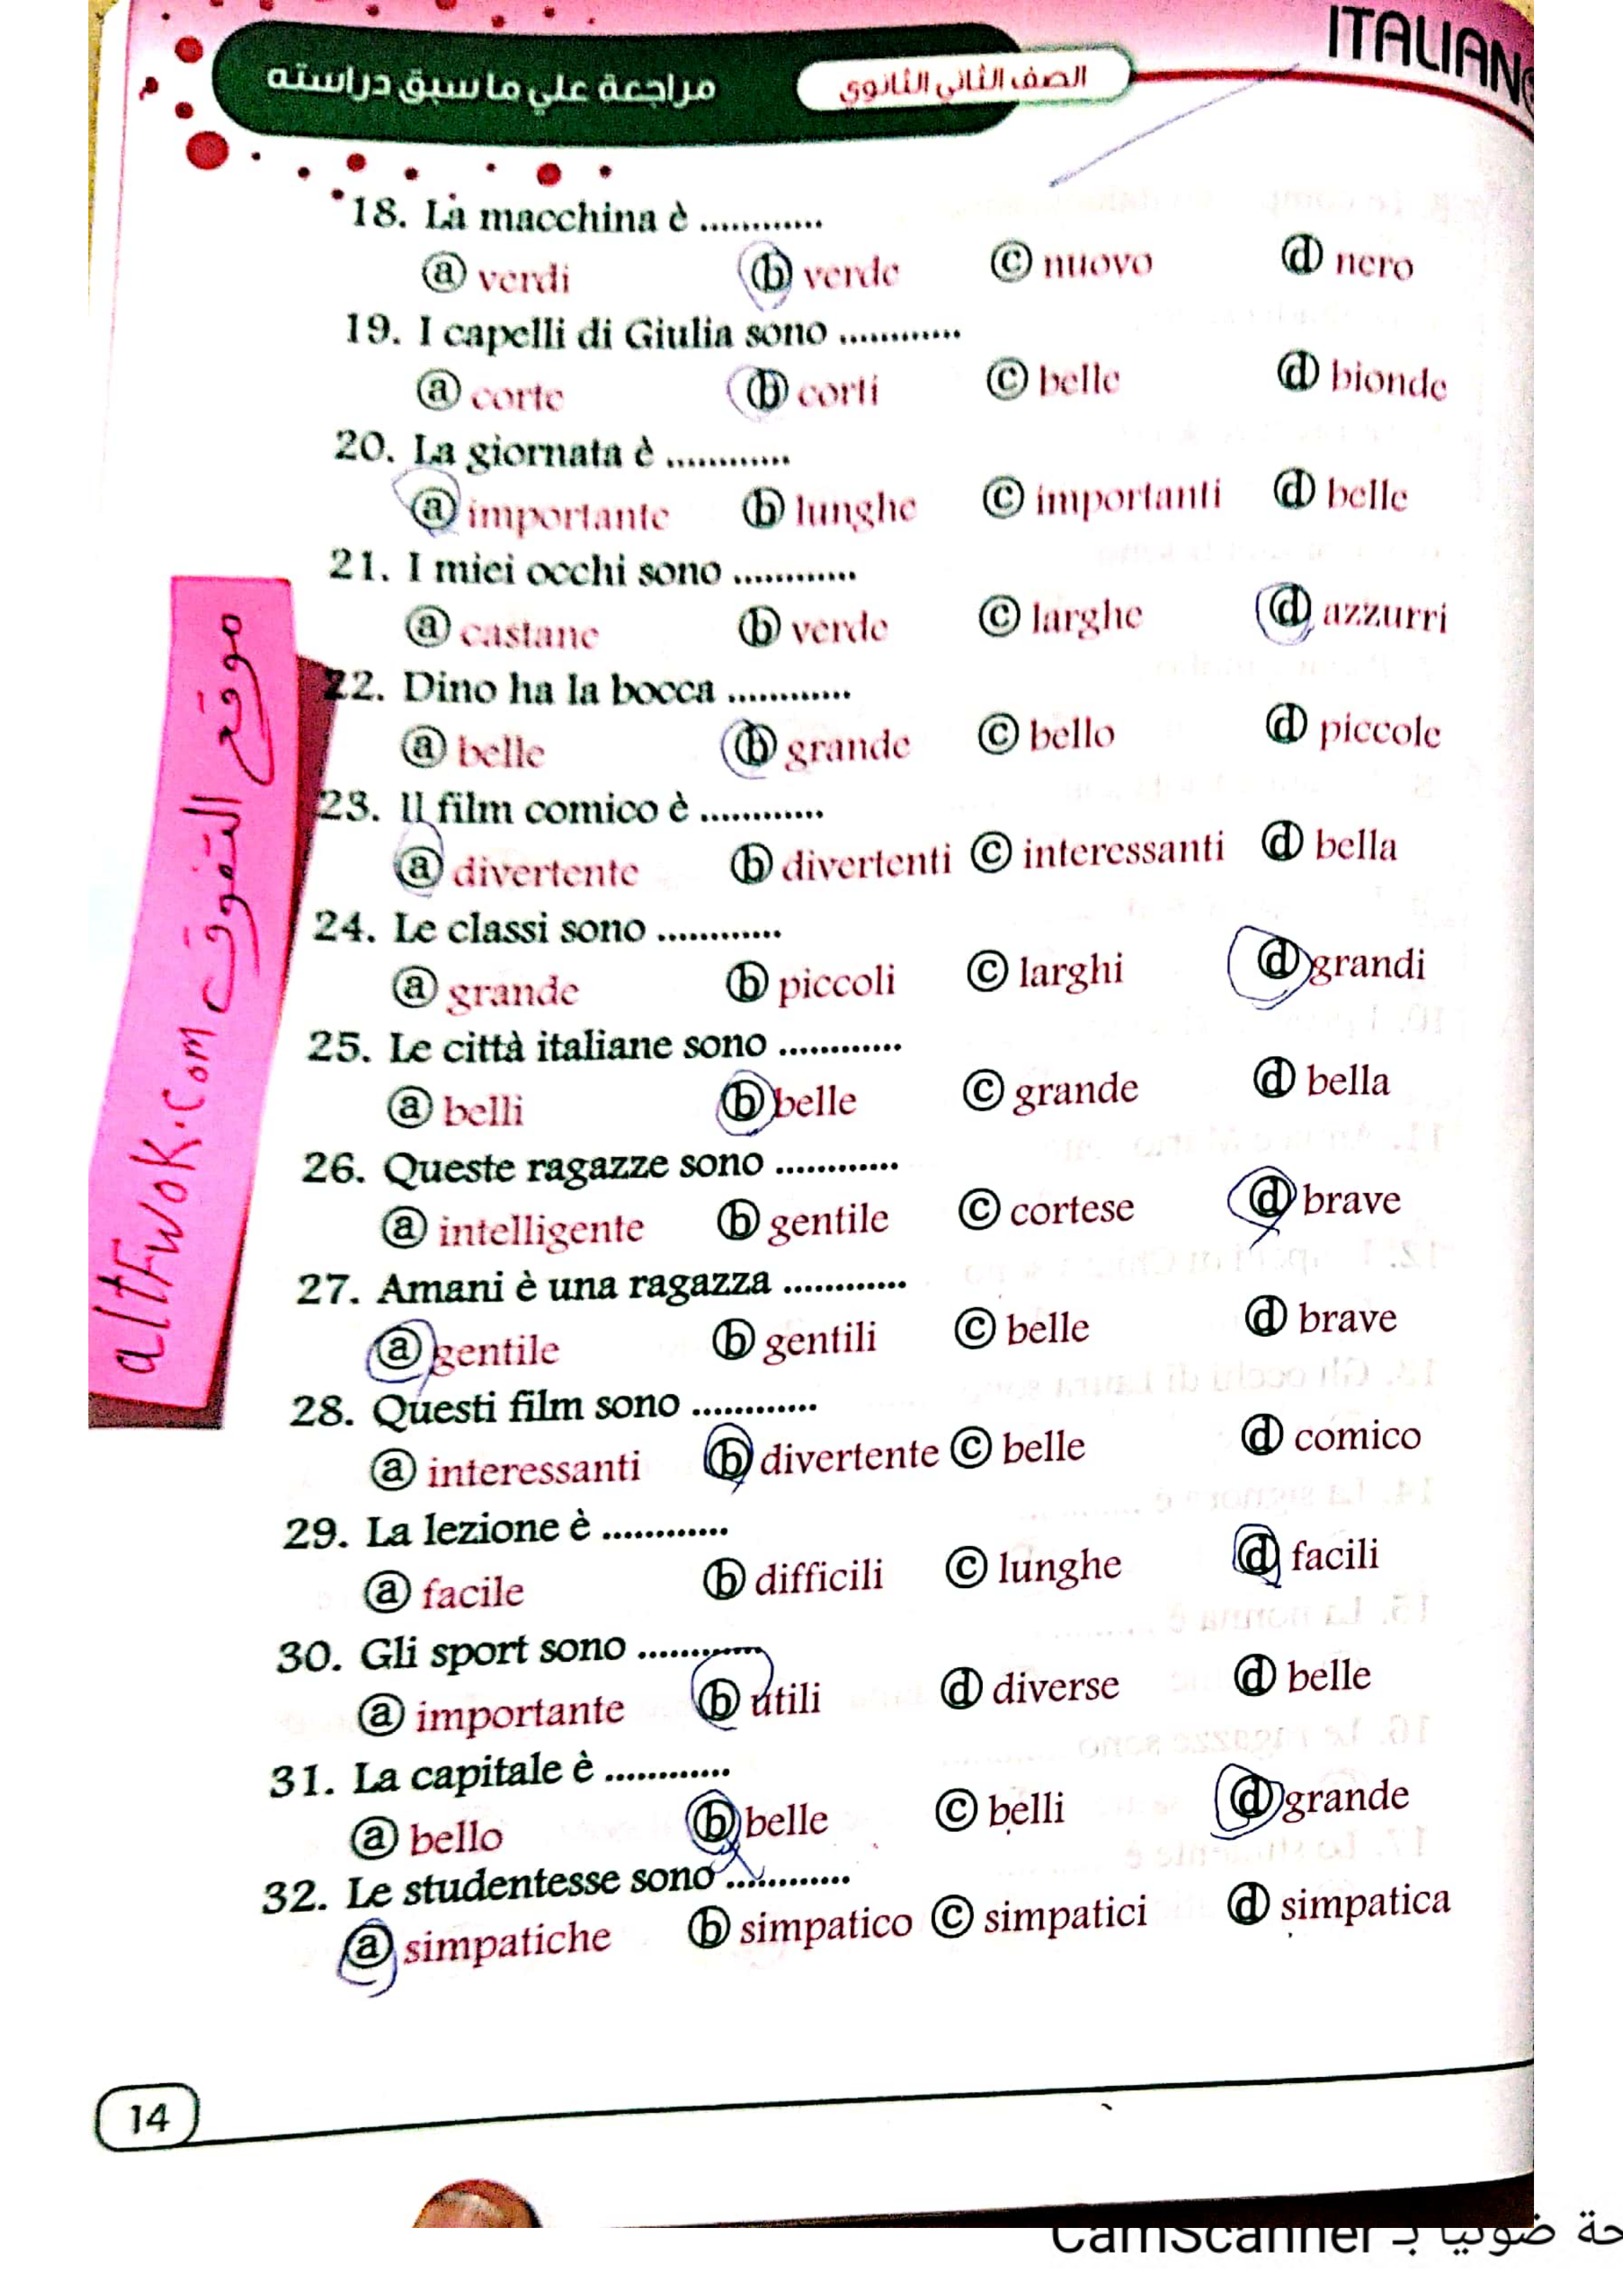 ITALIANO
مراجعة علي ما سبق دراسته
الصف الثاني الثانوي
18. La macchina è ............
ⓐ verdi ⓑ verde ⓒ nuovo ⓓ nero
19. I capelli di Giulia sono ............
ⓐ corte ⓑ corti ⓒ belle ⓓ bionde
20. La giornata è ............
ⓐ importante ⓑ lunghe ⓒ importanti ⓓ belle
21. I miei occhi sono ............
ⓐ castane ⓑ verde ⓒ larghe ⓓ azzurri
22. Dino ha la bocca ............
ⓐ belle ⓑ grande ⓒ bello ⓓ piccole
23. Il film comico è ............
ⓐ divertente ⓑ divertenti ⓒ interessanti ⓓ bella
24. Le classi sono ............
ⓐ grande ⓑ piccoli ⓒ larghi ⓓ grandi
25. Le città italiane sono ............
ⓐ belli ⓑ belle ⓒ grande ⓓ bella
26. Queste ragazze sono ............
ⓐ intelligente ⓑ gentile ⓒ cortese ⓓ brave
27. Amani è una ragazza ............
ⓐ gentile ⓑ gentili ⓒ belle ⓓ brave
28. Questi film sono ............
ⓐ interessanti ⓑ divertente ⓒ belle ⓓ comico
29. La lezione è ............
ⓐ facile ⓑ difficili ⓒ lunghe ⓓ facili
30. Gli sport sono ............
ⓐ importante ⓑ utili ⓓ diverse ⓓ belle
31. La capitale è ............
ⓐ bello ⓑ belle ⓒ belli ⓓ grande
32. Le studentesse sono ............
ⓐ simpatiche ⓑ simpatico ⓒ simpatici ⓓ simpatica
موقع التفوق altFwok.com
14
CamScanner ضوئيا بـ